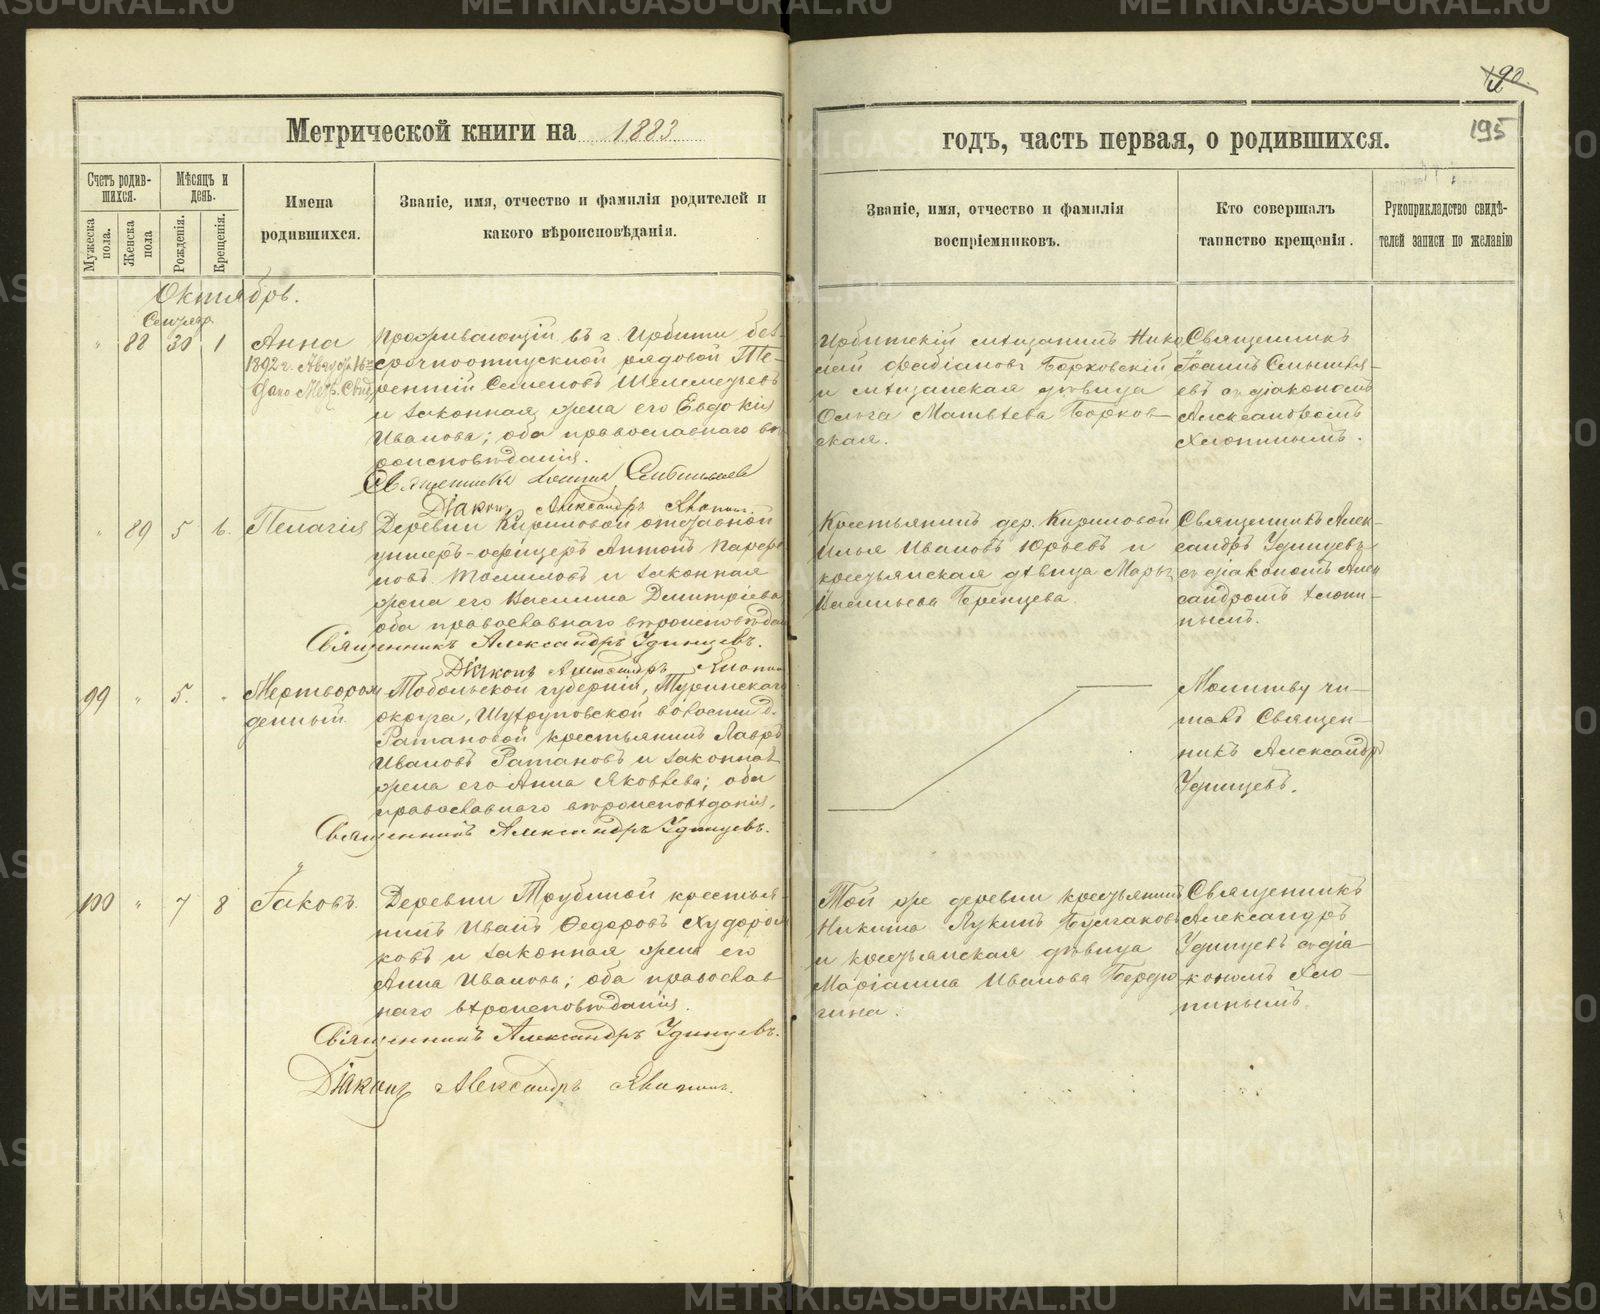 Метрической книги на 1883
годъ, часть первая, о родившихся.
195
Счетъ родив-
шихся.
Мѣсяцъ и
день.
Мужеска
пола.
Женска
пола
Рожденія.
Крещенія.
Имена
родившихся.
Званіе, имя, отчество и фамилія родителей и
какого вѣроисповѣданія.
Званіе, имя, отчество и фамилія
воспріемниковъ.
Кто совершалъ
таинство крещенія.
Рукоприкладство свидѣ-
телей записи по желанію
Октябрь.
Сентября
88 30 1
Анна
1892 г. Августа
Дано Метр. Свид.
Проживающій въ г. Ирбити без-
срочноотпускной рядовой Те-
рентій Семеновъ
и законная жена его Евдокія
Иванова; оба православнаго вѣ-
роисповѣданія.
Священникъ Іоаннъ
Діаконъ Александръ Хлопинъ.
Ирбитскій мѣщанинъ Нико-
лай Фабіановъ Борковскій
и мѣщанская дѣвица
Ольга Матвѣева Борков-
ская.
Священникъ
Іоаннъ
евъ съ діакономъ
Александромъ
Хлопинымъ.
89 5 6.
Пелагія
Деревни Кириловой отставной
унтеръ-офицеръ Антонъ Парфе-
новъ Томиловъ и законная
жена его Василиса Димитріева
оба православнаго вѣроисповѣдан
Священникъ Александръ Удинцевъ.
Діаконъ Александръ Хлопин
Крестьянинъ дер. Кириловой
Илья Ивановъ Юрьевъ и
крестьянская дѣвица Марѳа
Васильева
Священникъ Алек-
сандръ Удинцевъ
съ діакономъ Алек
сандромъ Хлопи-
нымъ.
99 " 5. "
Мертворож
денный
Тобольской губерніи, Туринскаго
округа, волости д.
Ратановой крестьянинъ Лавръ
Ивановъ Ратановъ и законная
жена его Анна Яковлева; оба
православнаго вѣроисповѣданія.
Священникъ Александръ Удинцевъ.
Молитву чи-
талъ Священ-
никъ Александръ
Удинцевъ.
100 " 7 8
Іаковъ.
Деревни Трубиной крестья-
нинъ Иванъ Ѳедоровъ Худорож
ковъ и законная жена его
Анна Иванова; оба православ-
наго вѣроисповѣданія.
Священникъ Александръ Удинцевъ.
Діаконъ Александръ Хлопинъ.
Той же деревни крестьянинъ
Никита Лукинъ Булгаковъ
и крестьянская дѣвица
Маріанна Иванова Бердю-
гина.
Священникъ
Александръ
Удинцевъ съ діа-
кономъ Хло-
пинымъ.
METRIKI.GASO-URAL.RU